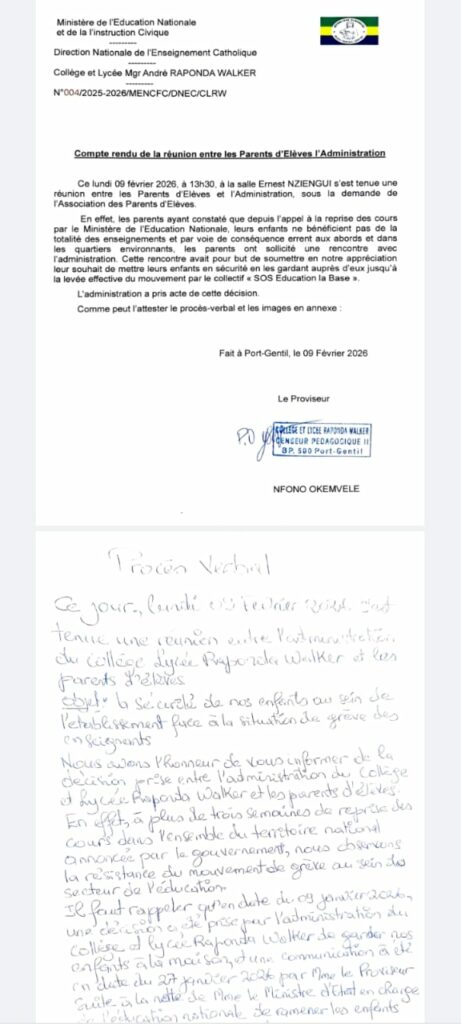 Ministère de l'Education Nationale
et de la l'instruction Civique
----------
Direction Nationale de l'Enseignement Catholique
----------
Collège et Lycée Mgr André RAPONDA WALKER
----------
N°004/2025-2026/MENCFC/DNEC/CLRW
Compte rendu de la réunion entre les Parents d'Elèves l'Administration
Ce lundi 09 février 2026, à 13h30, à la salle Ernest NZIENGUI s'est tenue une
réunion entre les Parents d'Elèves et l'Administration, sous la demande de
l'Association des Parents d'Elèves.
En effet, les parents ayant constaté que depuis l'appel à la reprise des cours
par le Ministère de l'Education Nationale, leurs enfants ne bénéficient pas de la
totalité des enseignements et par voie de conséquence errent aux abords et dans
les quartiers environnants, les parents ont sollicité une rencontre avec
l'administration. Cette rencontre avait pour but de soumettre en notre appréciation
leur souhait de mettre leurs enfants en sécurité en les gardant auprès d'eux jusqu'à
la levée effective du mouvement par le collectif « SOS Education la Base ».
L'administration a pris acte de cette décision.
Comme peut l'attester le procès-verbal et les images en annexe :
Fait à Port-Gentil, le 09 Février 2026
Le Proviseur
P.O
COLLEGE ET LYCEE RAPONDA WALKER
CENSEUR PEDAGOGIQUE II
BP. 500 Port-Gentil
NFONO OKEMVELE
Procès Verbal
Ce jour, lundi 09 Février 2026 s'est
tenue une réunion entre l'administration
du Collège Lycée Raponda Walker et les
parents d'élèves
Objet: la sécurité de nos enfants au sein de
l'établissement face à la situation de grève des
enseignants
Nous avons l'honneur de vous informer de la
décision prise entre l'administration du Collège
et Lycée Raponda Walker et les parents d'élèves.
En effet, à plus de trois semaines de reprise des
cours dans l'ensemble du territoire national
annoncée par le gouvernement, nous
la résistance du mouvement de grève au sein du
secteur de l'éducation.
Il faut rappeler qu'en date du 09 janvier 2026,
une décision a été prise par l'administration du
Collège et lycée Raponda Walker de garder nos
enfants à la maison, et une communication a été
en date du 27 janvier 2026 par Mme le Proviseur
suite à la de Mme le Ministre d'Etat en charge
de l'éducation nationale de ramener les enfants